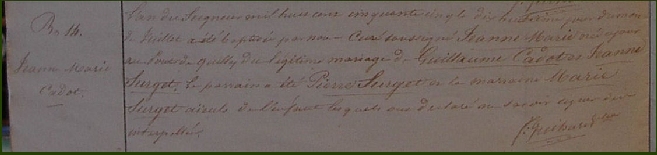 Bn 14.
Jeanne Marie
Cadot.
L'an du Seigneur mil huit cent cinquante cinq le dix huitième jour du mois
de Juillet a été baptisée par nous Curé soussigné Jeanne Marie née
du légitime mariage de Guillaume Cadot et Jeanne
Surget. Le parrain a été Pierre Surget et la marraine Marie
Surget aïeule de l'enfant lesquels ont déclaré ne savoir signer de ce
interpellés.